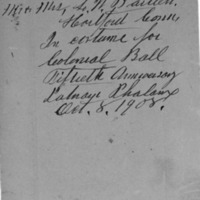 Mr & Mrs
Hartford Conn.
In costume for
Colonial Ball
Fiftieth Anniversary
Putnam Phalanx
Oct. 8, 1908.